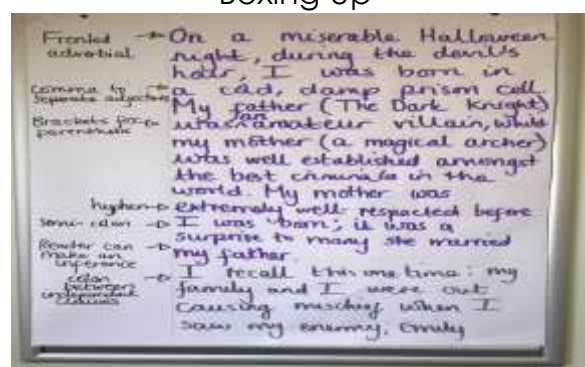 Boxing up
Fronted adverbial → On a miserable Halloween
night, during the devil's
hour, I was born in
comma to separate adjectives → a cold, damp prison cell.
My father (The Dark Knight)
Brackets for parenthesis → was an amateur villain, whilst
my mother (a magical archer)
was well established amongst
the best criminals in the
world. My mother was
hyphen → extremely well respected before
semi-colon → I was born; it was a
surprise to many she married
Reader can make an inference → my father.
colon between independent clauses → I recall this one time: my
family and I were out
causing mischief when I
saw my enemy, Emily